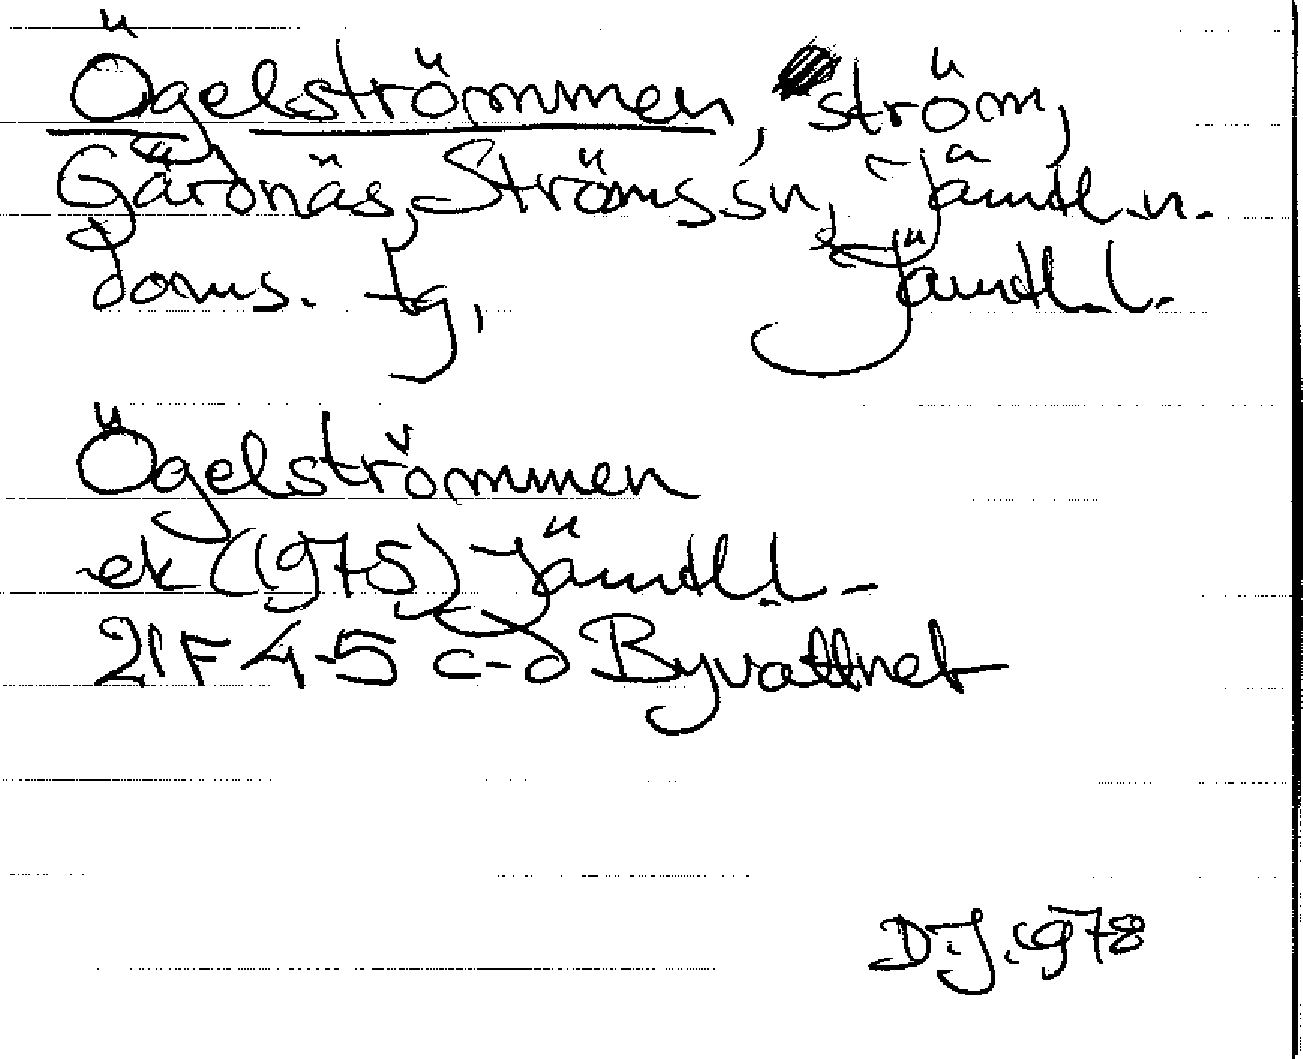 Ögelströmmen, ström,
Gärdnäs, Ströms sn, Jämtl. n.
doms. tg, Jämtl. l.
Ögelströmmen
ek (1975) Jämtl. l.
21F 4-5 c-d Byvattnet
D.J. 1978